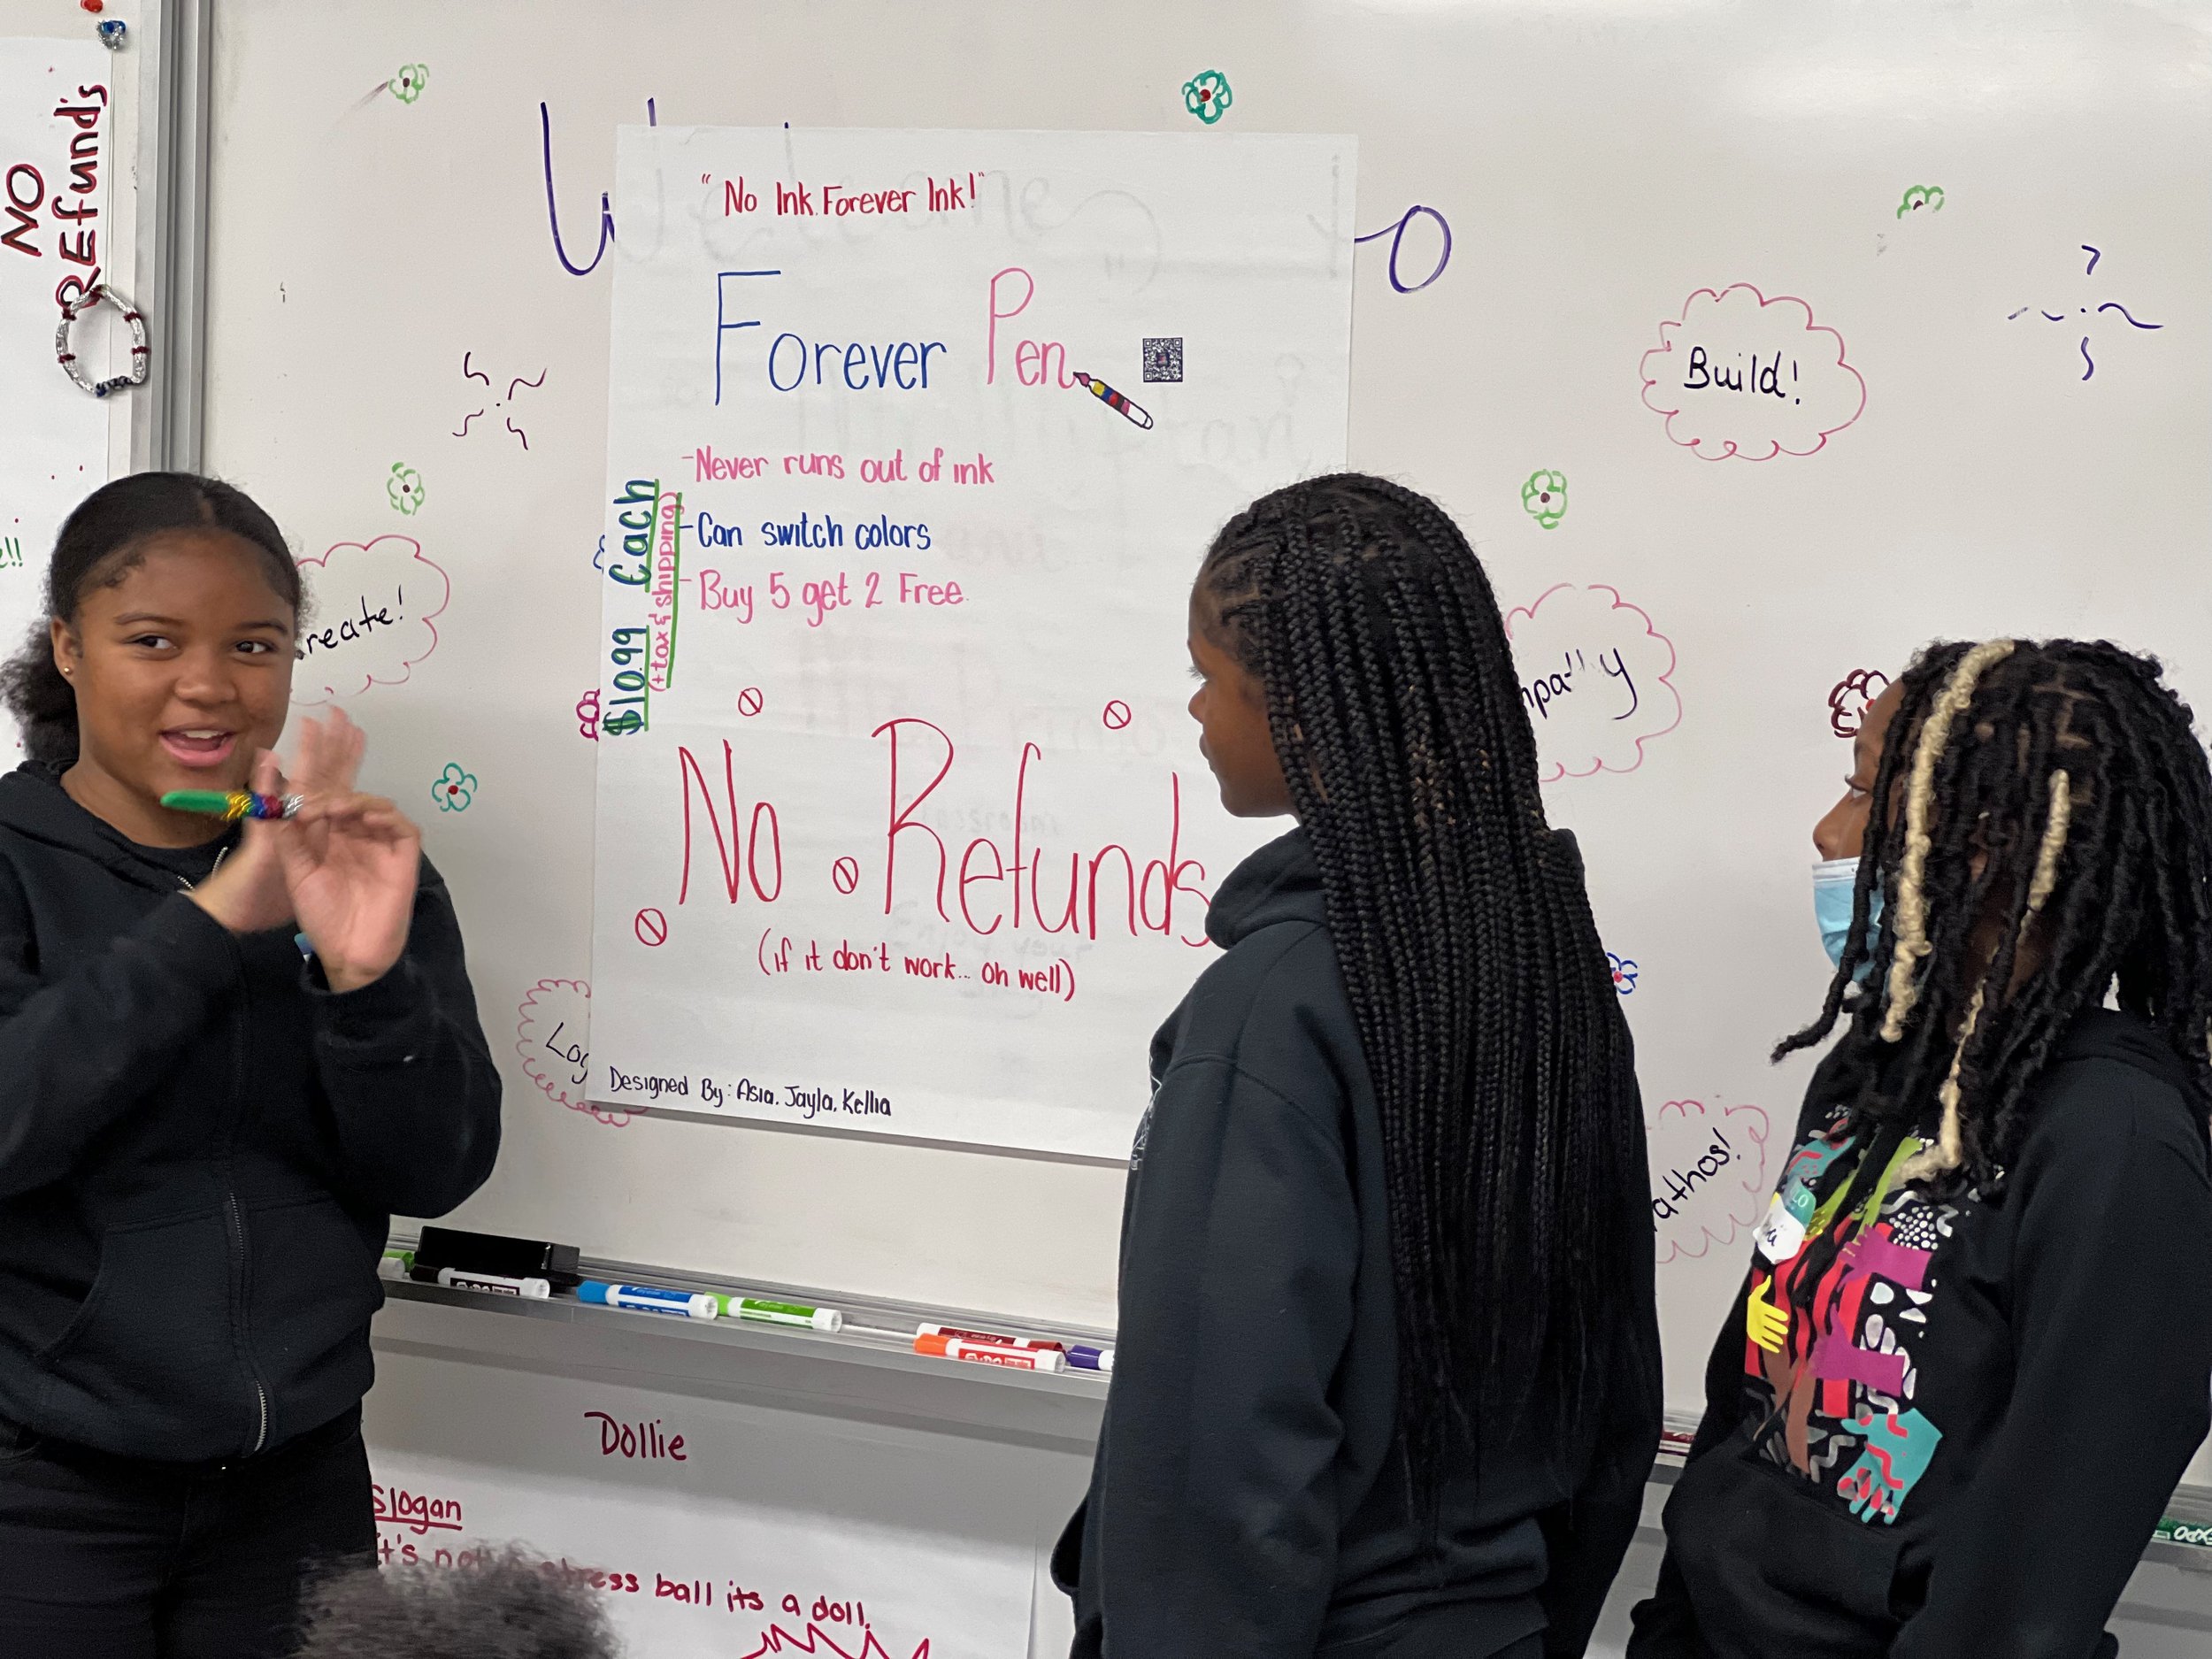 NO
REfunds
"No Ink. Forever Ink!"
Forever Pen
-Never runs out of ink
-Can switch colors
-Buy 5 get 2 Free.
$10.99 Each
(+tax & shipping)
No Refunds
(if it don't work... oh well)
Designed By: Asia, Jayla, Kellia
o
Build!
reate!
Log
athos!
Dollie
Slogan
ball its a doll.